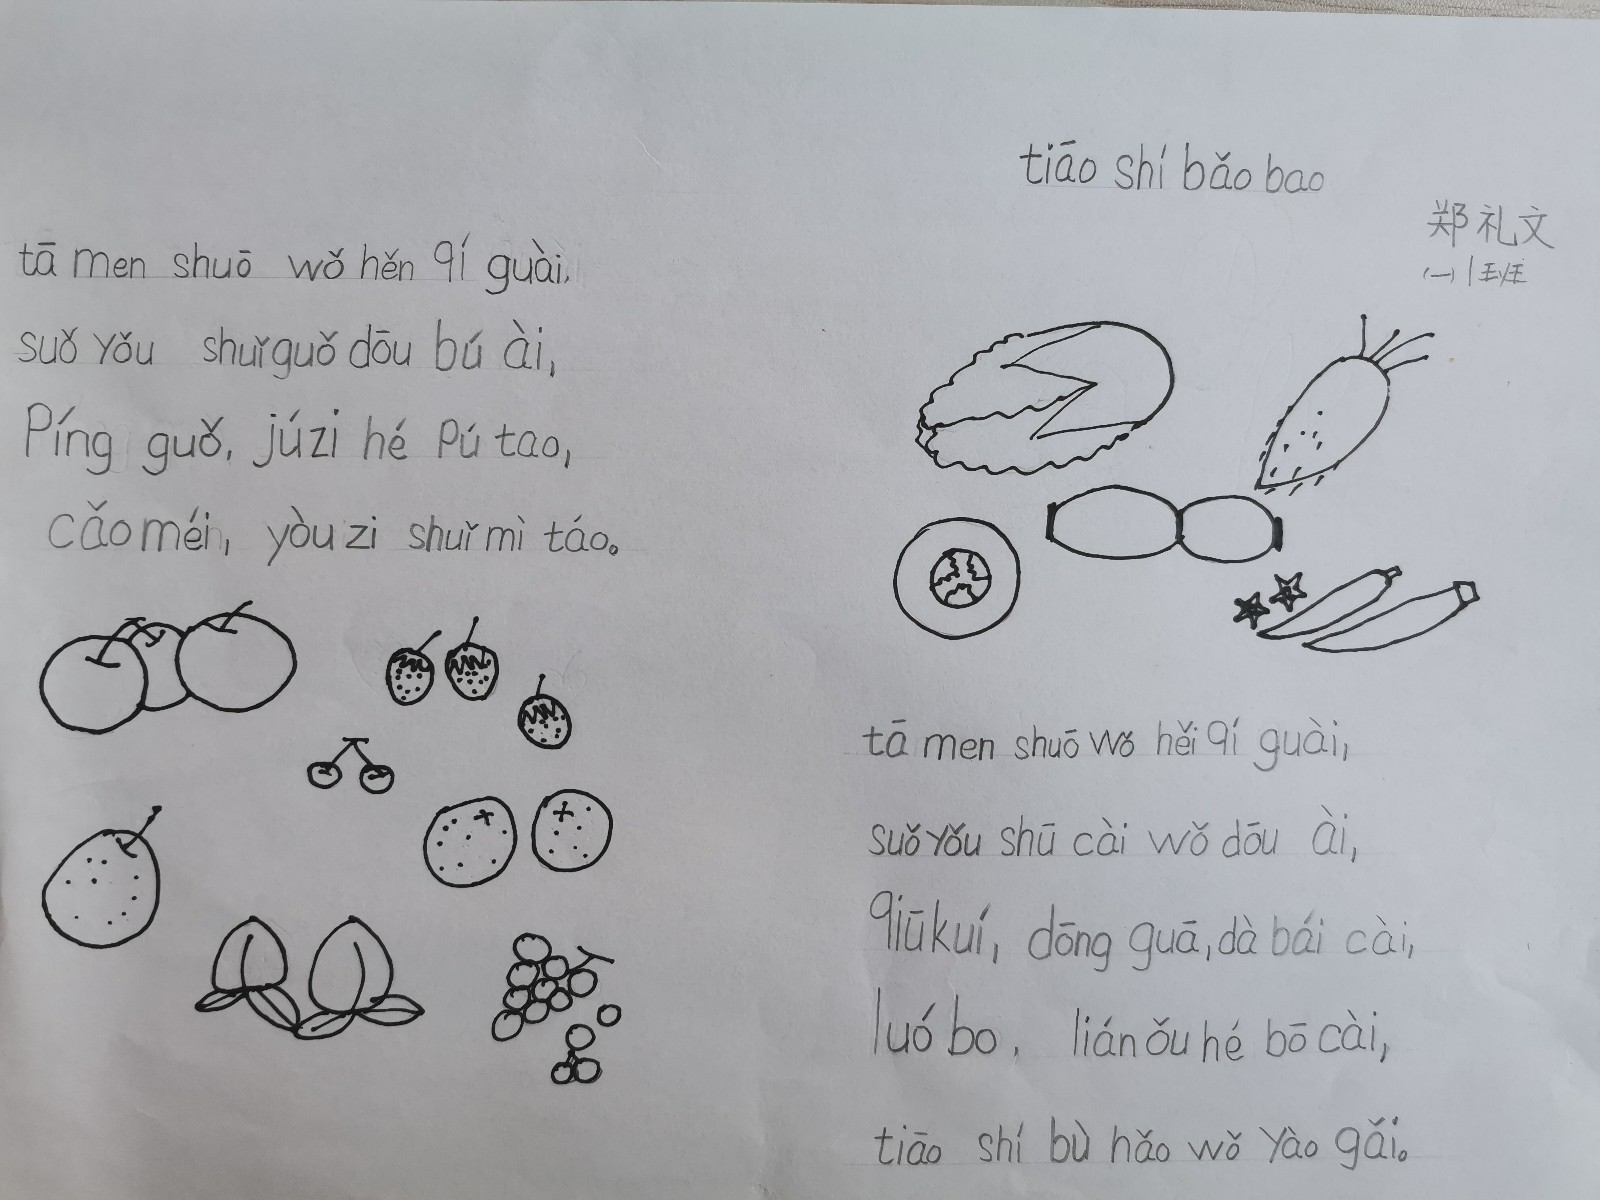 tiāo shí bǎo bao
郑礼文
(一)1班
tā men shuō wǒ hěn qí guài,
suǒ yǒu shuǐ guǒ dōu bú ài,
Píng guǒ, júzi hé Pú tao,
cǎo méi, yòu zi shuǐ mì táo。
tā men shuō wǒ hěi qí guài,
suǒ yǒu shū cài wǒ dōu ài,
qiūkuí, dōng guā, dà bái cài,
luó bo, lián ǒu hé bō cài,
tiāo shí bù hǎo wǒ yào gǎi。